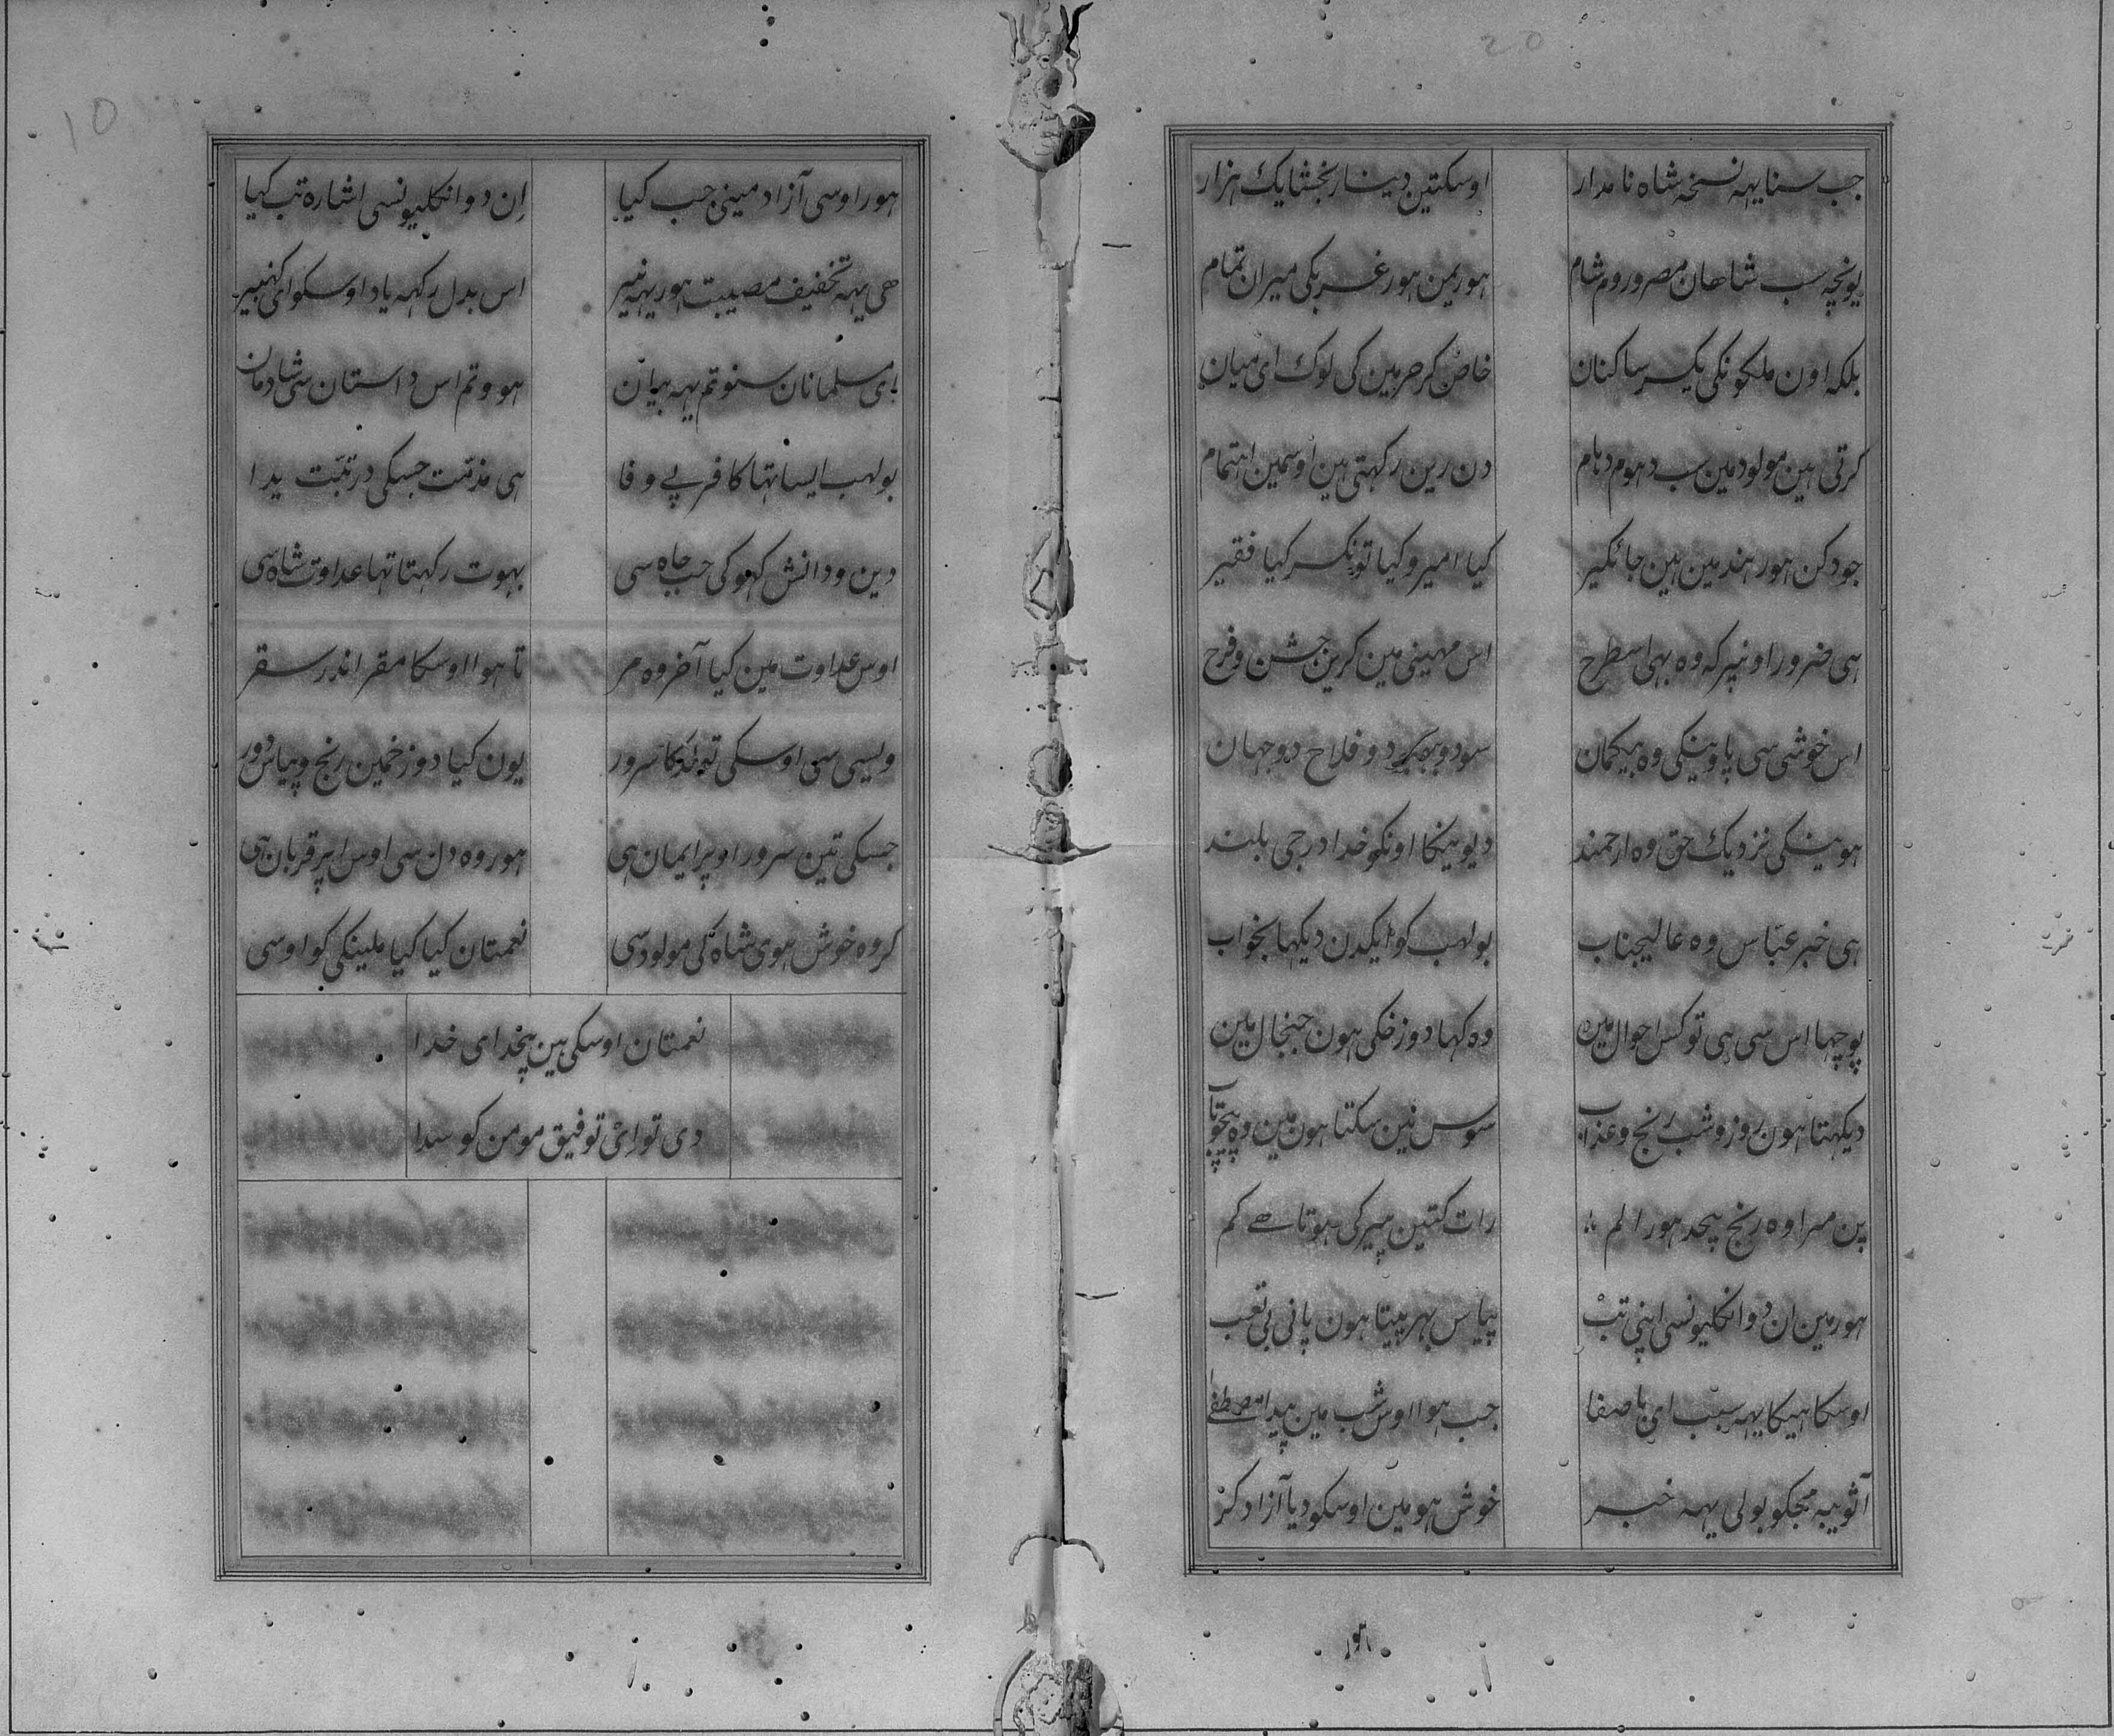 20
جب سنا یہہ نسخہ شاہ نامدار اوسکتیں دینار بخشا یک ہزار
یونچہ سب شاھان مصر و روم شام ہور یمن ہور غربکی میران تمام
بلکہ اون ملکھونکی یکسر ساکنان خاص کر حرمین کی لوک ای میان
کرتی ہین مولود مین سب دہوم دہام دن رین رکہتی ہین اوسمین اہتمام
جو دکن ہور ہند مین ہین جائگیر کیا امیر و کیا تونگر کیا فقیر
ہی ضرور اونپر کہ وہ بہی اسطرح اس مہینی مین کرین جشن و فرح
اس خوشی سی پاوینکی وہ بیکمان سود و بہبود و فلاح دو جہان
ہوینکی نزدیک حق وہ ارجمند دیوینکا اونکو خدا درجی بلند
ہی خبر عبّاس وہ عالیجناب بولہب کو ایکدن دیکہا بخواب
پوچہا اس سی ہی تو کس احوال مین وہ کہا دوزخکی ہون جنجال مین
دیکہتا ہون روز و شب رنج و عذاب سوس نین سکتا ہون مین وہ پیچ و تاب
پن مرا وہ رنج بیحد ہور الم رات کتین پیر کی ہوتا ہے کم
ہور مین ان دو انکلیونسی اپنی تب پیاس بہر پیتا ہون پانی بی تعب
اوسکا ہیکا یہہ سبب ای باصفا جب ہوا اوس شب مین پیدا مصطفی
آثویبہ مجکو بولی یہہ خبر خوش ہو مین اوسکو دیا آزاد کر
ہور
10
ہور اوسی آزاد مینی جب کیا اِن دو انکلیونسی اشارہ تب کیا
ھی یہہ تخفیف مصیبت ہور یہہ نیر اس بدل رکہہ یاد اوسکو ای کنہیر
ای مسلمانان سنو تم یہہ بیان ہووتم اس داستان سی شادمان
بولہب ایسا تہا کافر بے وفا ہی مذمّت جسکی در تبّت یدا
دین و دانش کہو کی حب جاہ سی بہوت رکہتا تہا عداوت شاہ سی
اوس عداوت مین کیا آخر وہ مر تا ہوا اوسکا مقر اندر سقر
ویسی سی اوسکی تولّد کا سرور یون کیا دوزخمین رنج و پیاس دور
جسکی تین سرور اوپر ایمان ہی ہور وہ دل سی اوس اپر قربان ہی
کر وہ خوش ہوی شاہ کی مولود سی نعمتان کیا کیا ملینکی کو اوسی
نعمتان اوسکی ہین بیحد ای خدا
دی تو اِیْ توفیق مومن کو سدا